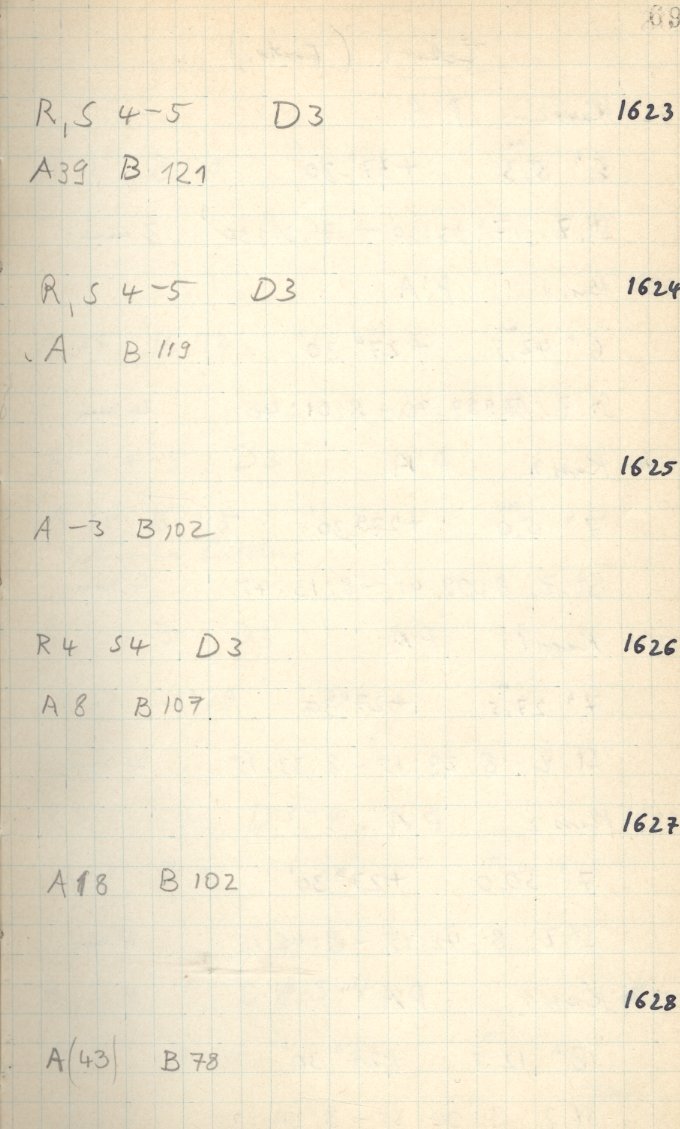 69
R, S 4-5 D3 1623
A39 B 121
R, S 4-5 D3 1624
A B 119
1625
A -3 B 102
R4 S4 D3 1626
A 8 B 107
1627
A 18 B 102
1628
A(43) B 78